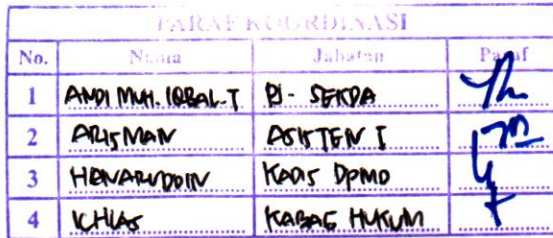 PARAF KOORDINASI
No. Nama Jabatan Paraf
1 ANDI MUH. IQBAL.T PJ - SEKDA
2 ARISMAN ASISTEN I
3 HENARUDDIN KADIS DPMD
4 ICHLAS KABAG HUKUM